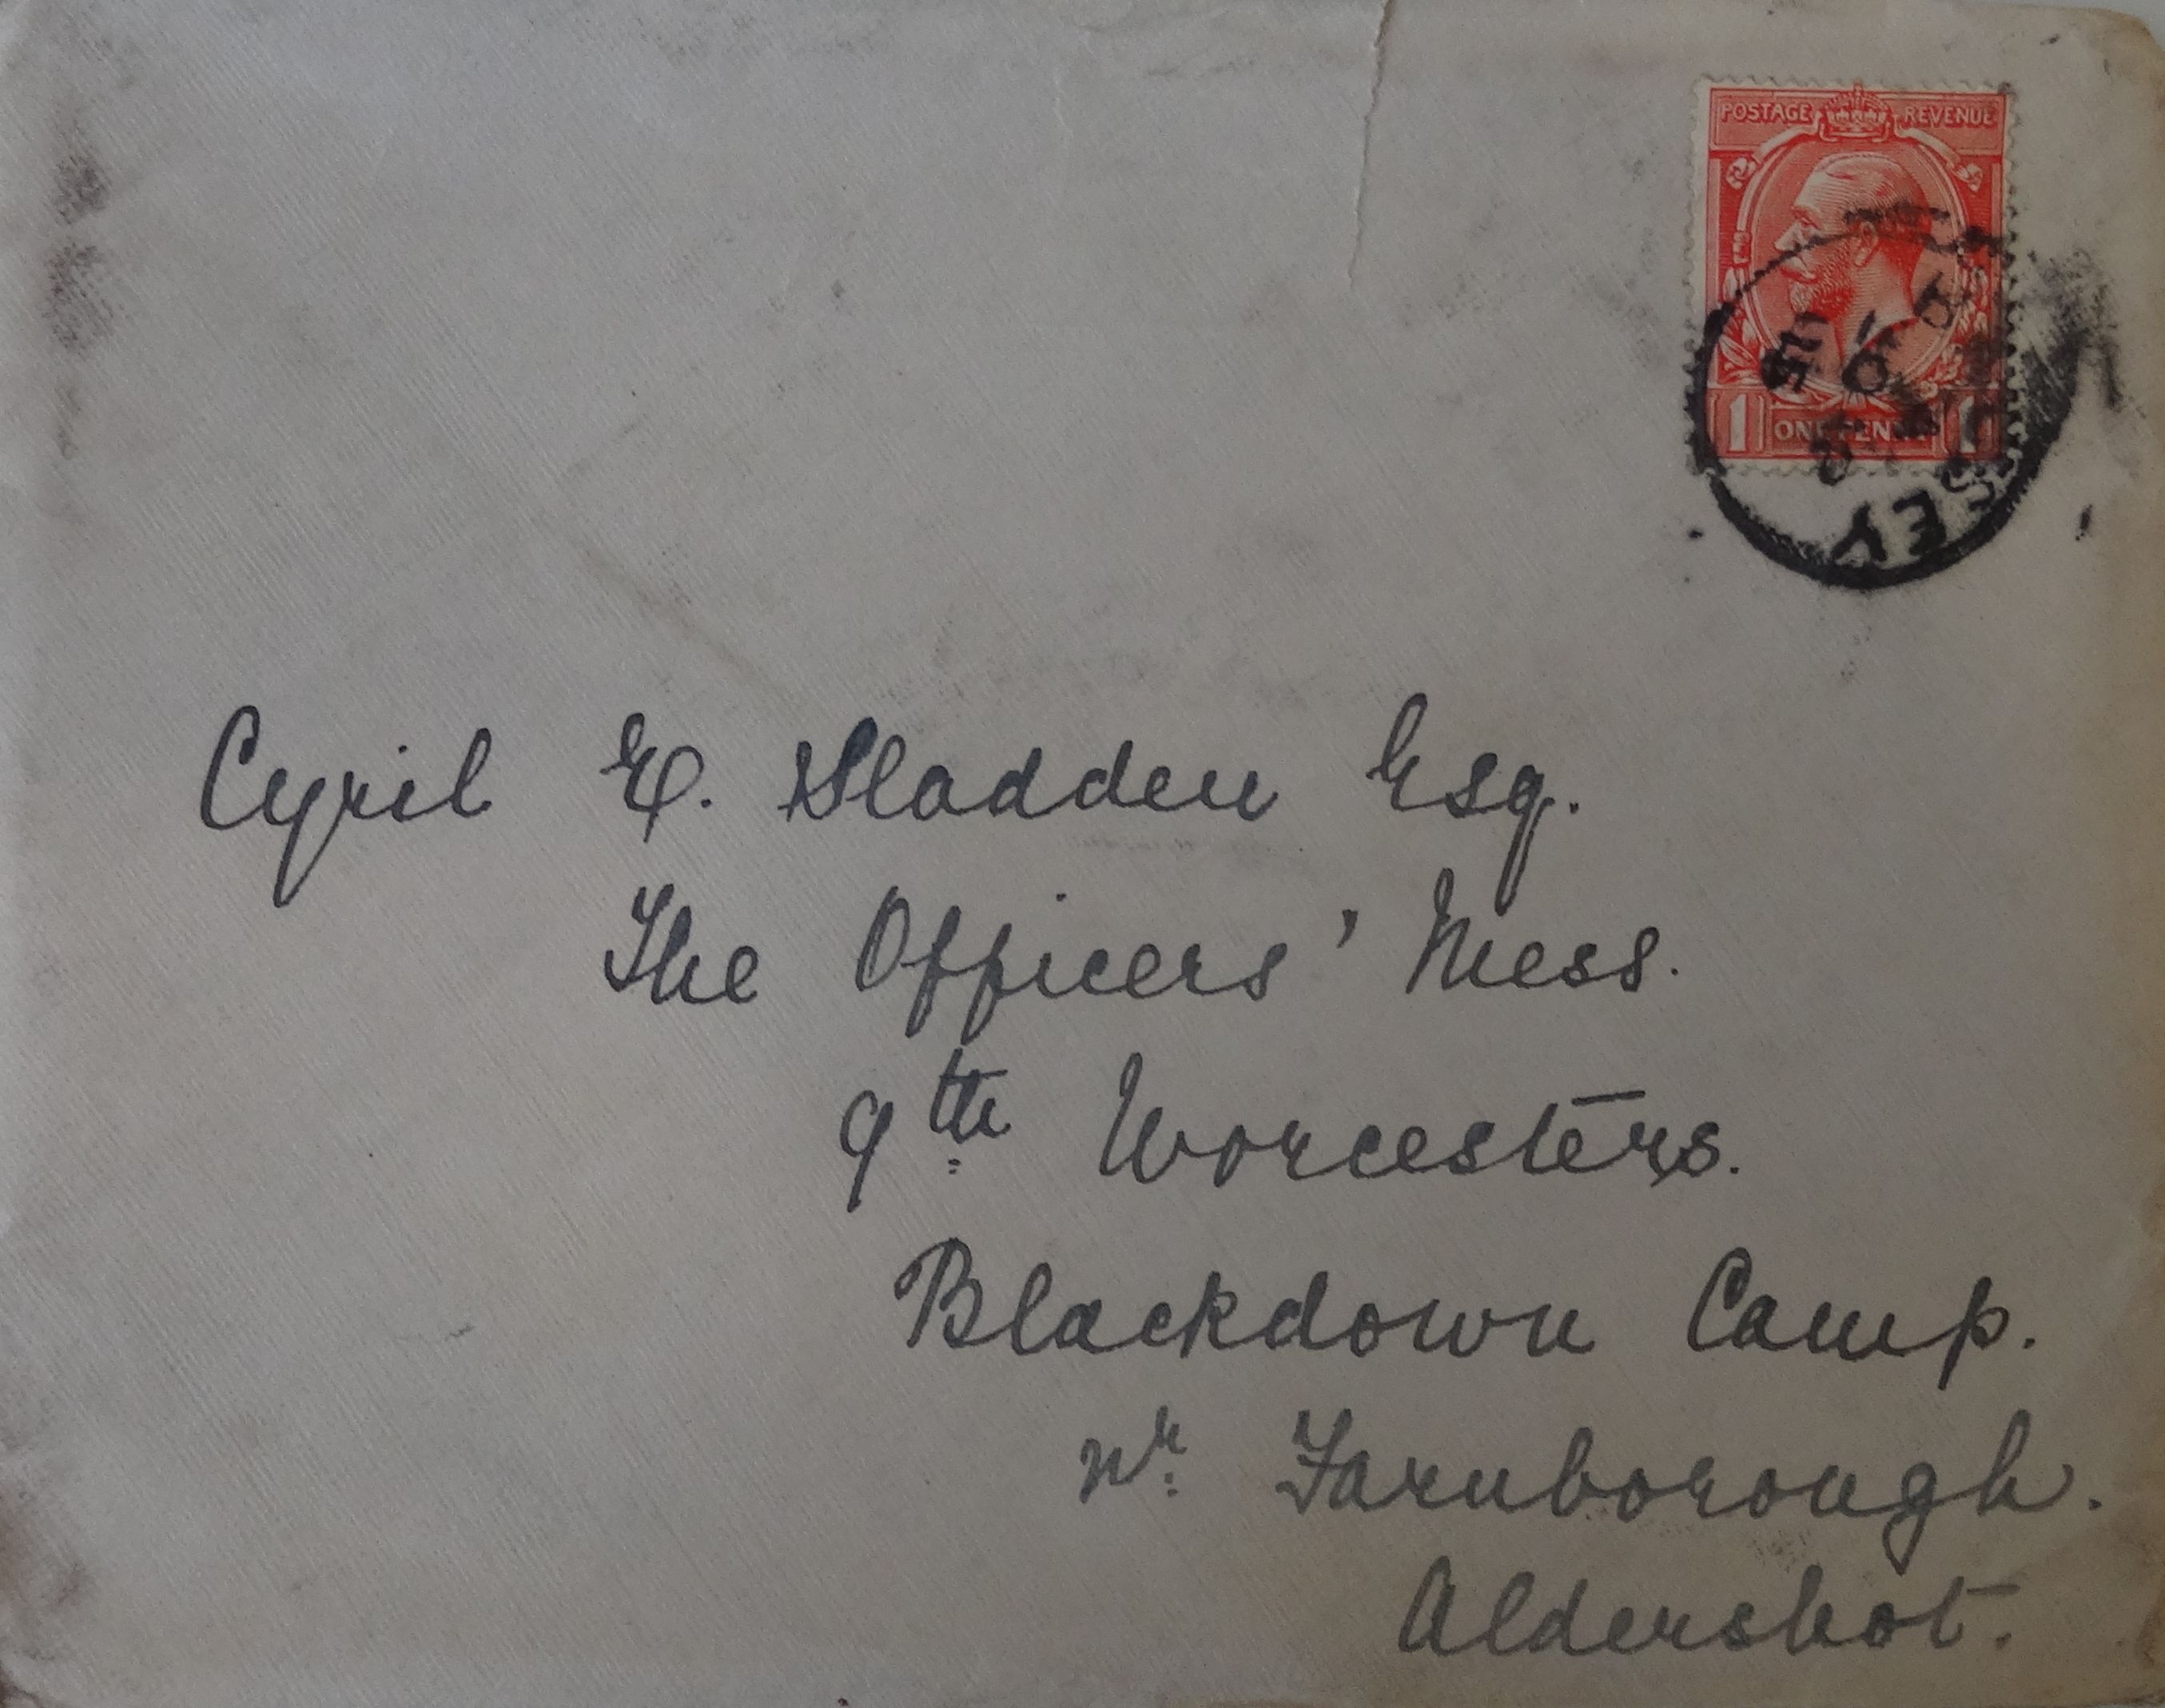 POSTAGE REVENUE
1 ONE PENNY 1
SEY
15
Cyril E. Sladden Esq.
The Officers' Mess.
9th Worcesters.
Blackdown Camp.
Nr. Farnborough.
Aldershot.